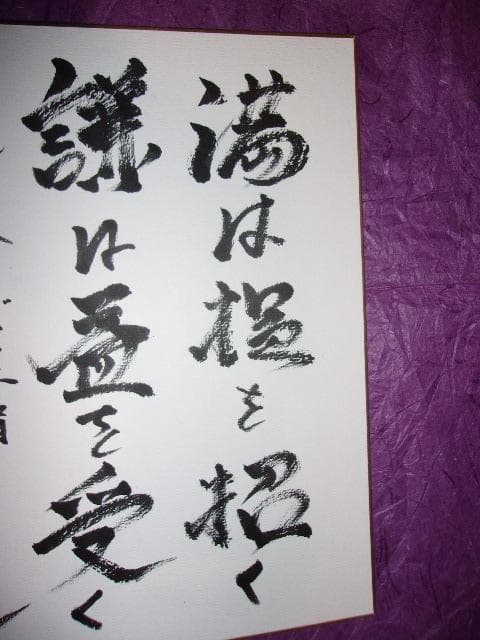 満は損を招く
謙は益を受く